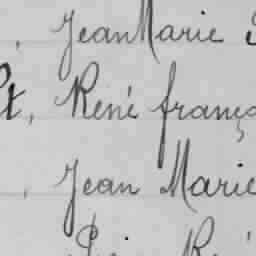 , Jean Marie
t, René franç
, Jean Marie